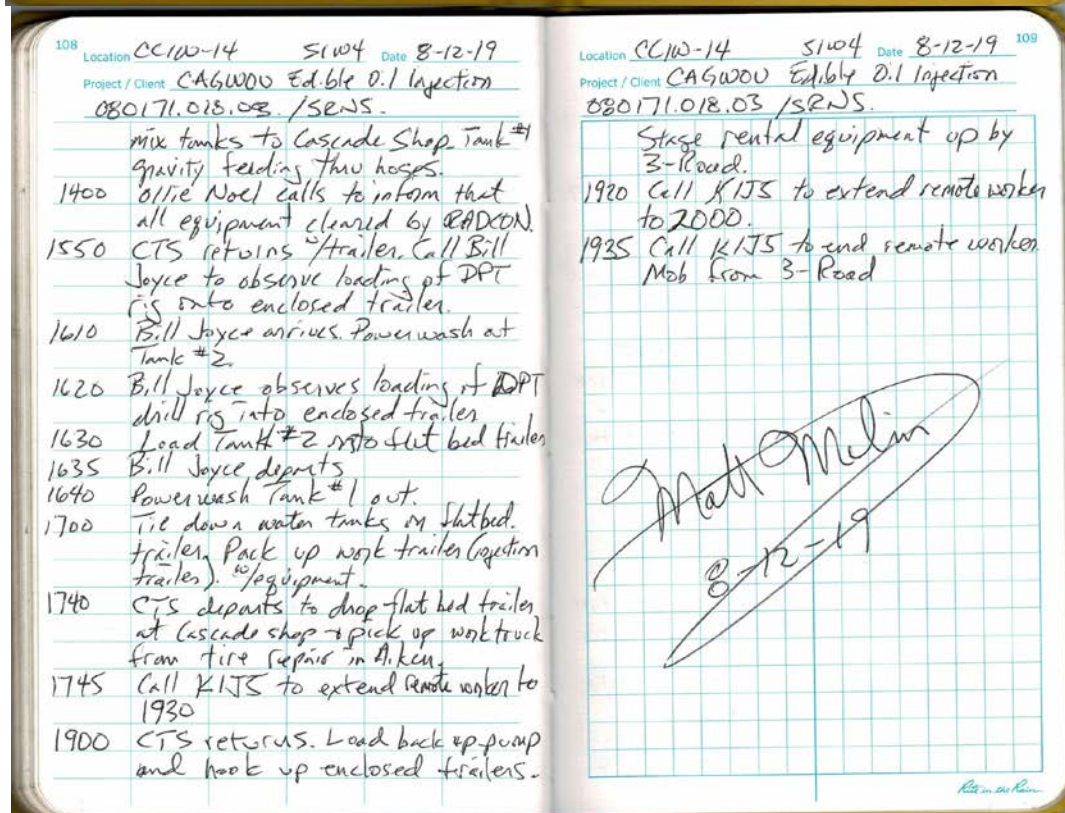 108
Location CCIW-14 SIW04 Date 8-12-19
Project / Client CAGWOU Edible Oil Injection
080171.018.03 /SRNS.
mix tanks to Cascade Shop Tank #1
gravity feeding thru hoses.
1400 Ollie Noel calls to inform that
all equipment cleared by RADCON.
1550 CTS returns w/trailer. Call Bill
Joyce to observe loading of DPT
rig onto enclosed trailer.
1610 Bill Joyce arrives. Powerwash out
Tank #2.
1620 Bill Joyce observes loading of DPT
drill rig into enclosed trailer
1630 Load Tank #2 onto flat bed trailer
1635 Bill Joyce departs
1640 Powerwash Tank #1 out.
1700 Tie down water tanks on flatbed.
trailer. Pack up work trailer (injection
trailer). w/equipment.
1740 CTS departs to drop flat bed trailer
at Cascade shop + pick up work truck
from tire repair in Aiken.
1745 Call KIJ5 to extend remote worker to
1930
1900 CTS returns. Load back up pump
and hook up enclosed trailers.
109
Location CCIW-14 SIW04 Date 8-12-19
Project / Client CAGWOU Edible Oil Injection
080171.018.03 /SRNS.
Stage rental equipment up by
3-Road.
1920 Call KIJ5 to extend remote worker
to 2000.
1935 Call KIJ5 to end remote worker.
Mob from 3-Road
Matt
8-12-19
Rite in the Rain